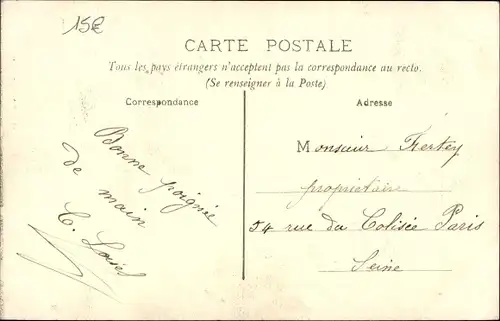 15€
CARTE POSTALE
Tous les pays étrangers n'acceptent pas la correspondance au recto.
(Se renseigner à la Poste)
Correspondance
Bonne poignée
de main
C. Loisel
Adresse
Monsieur Fertey
propriétaire
54 rue du Colisée Paris
Seine